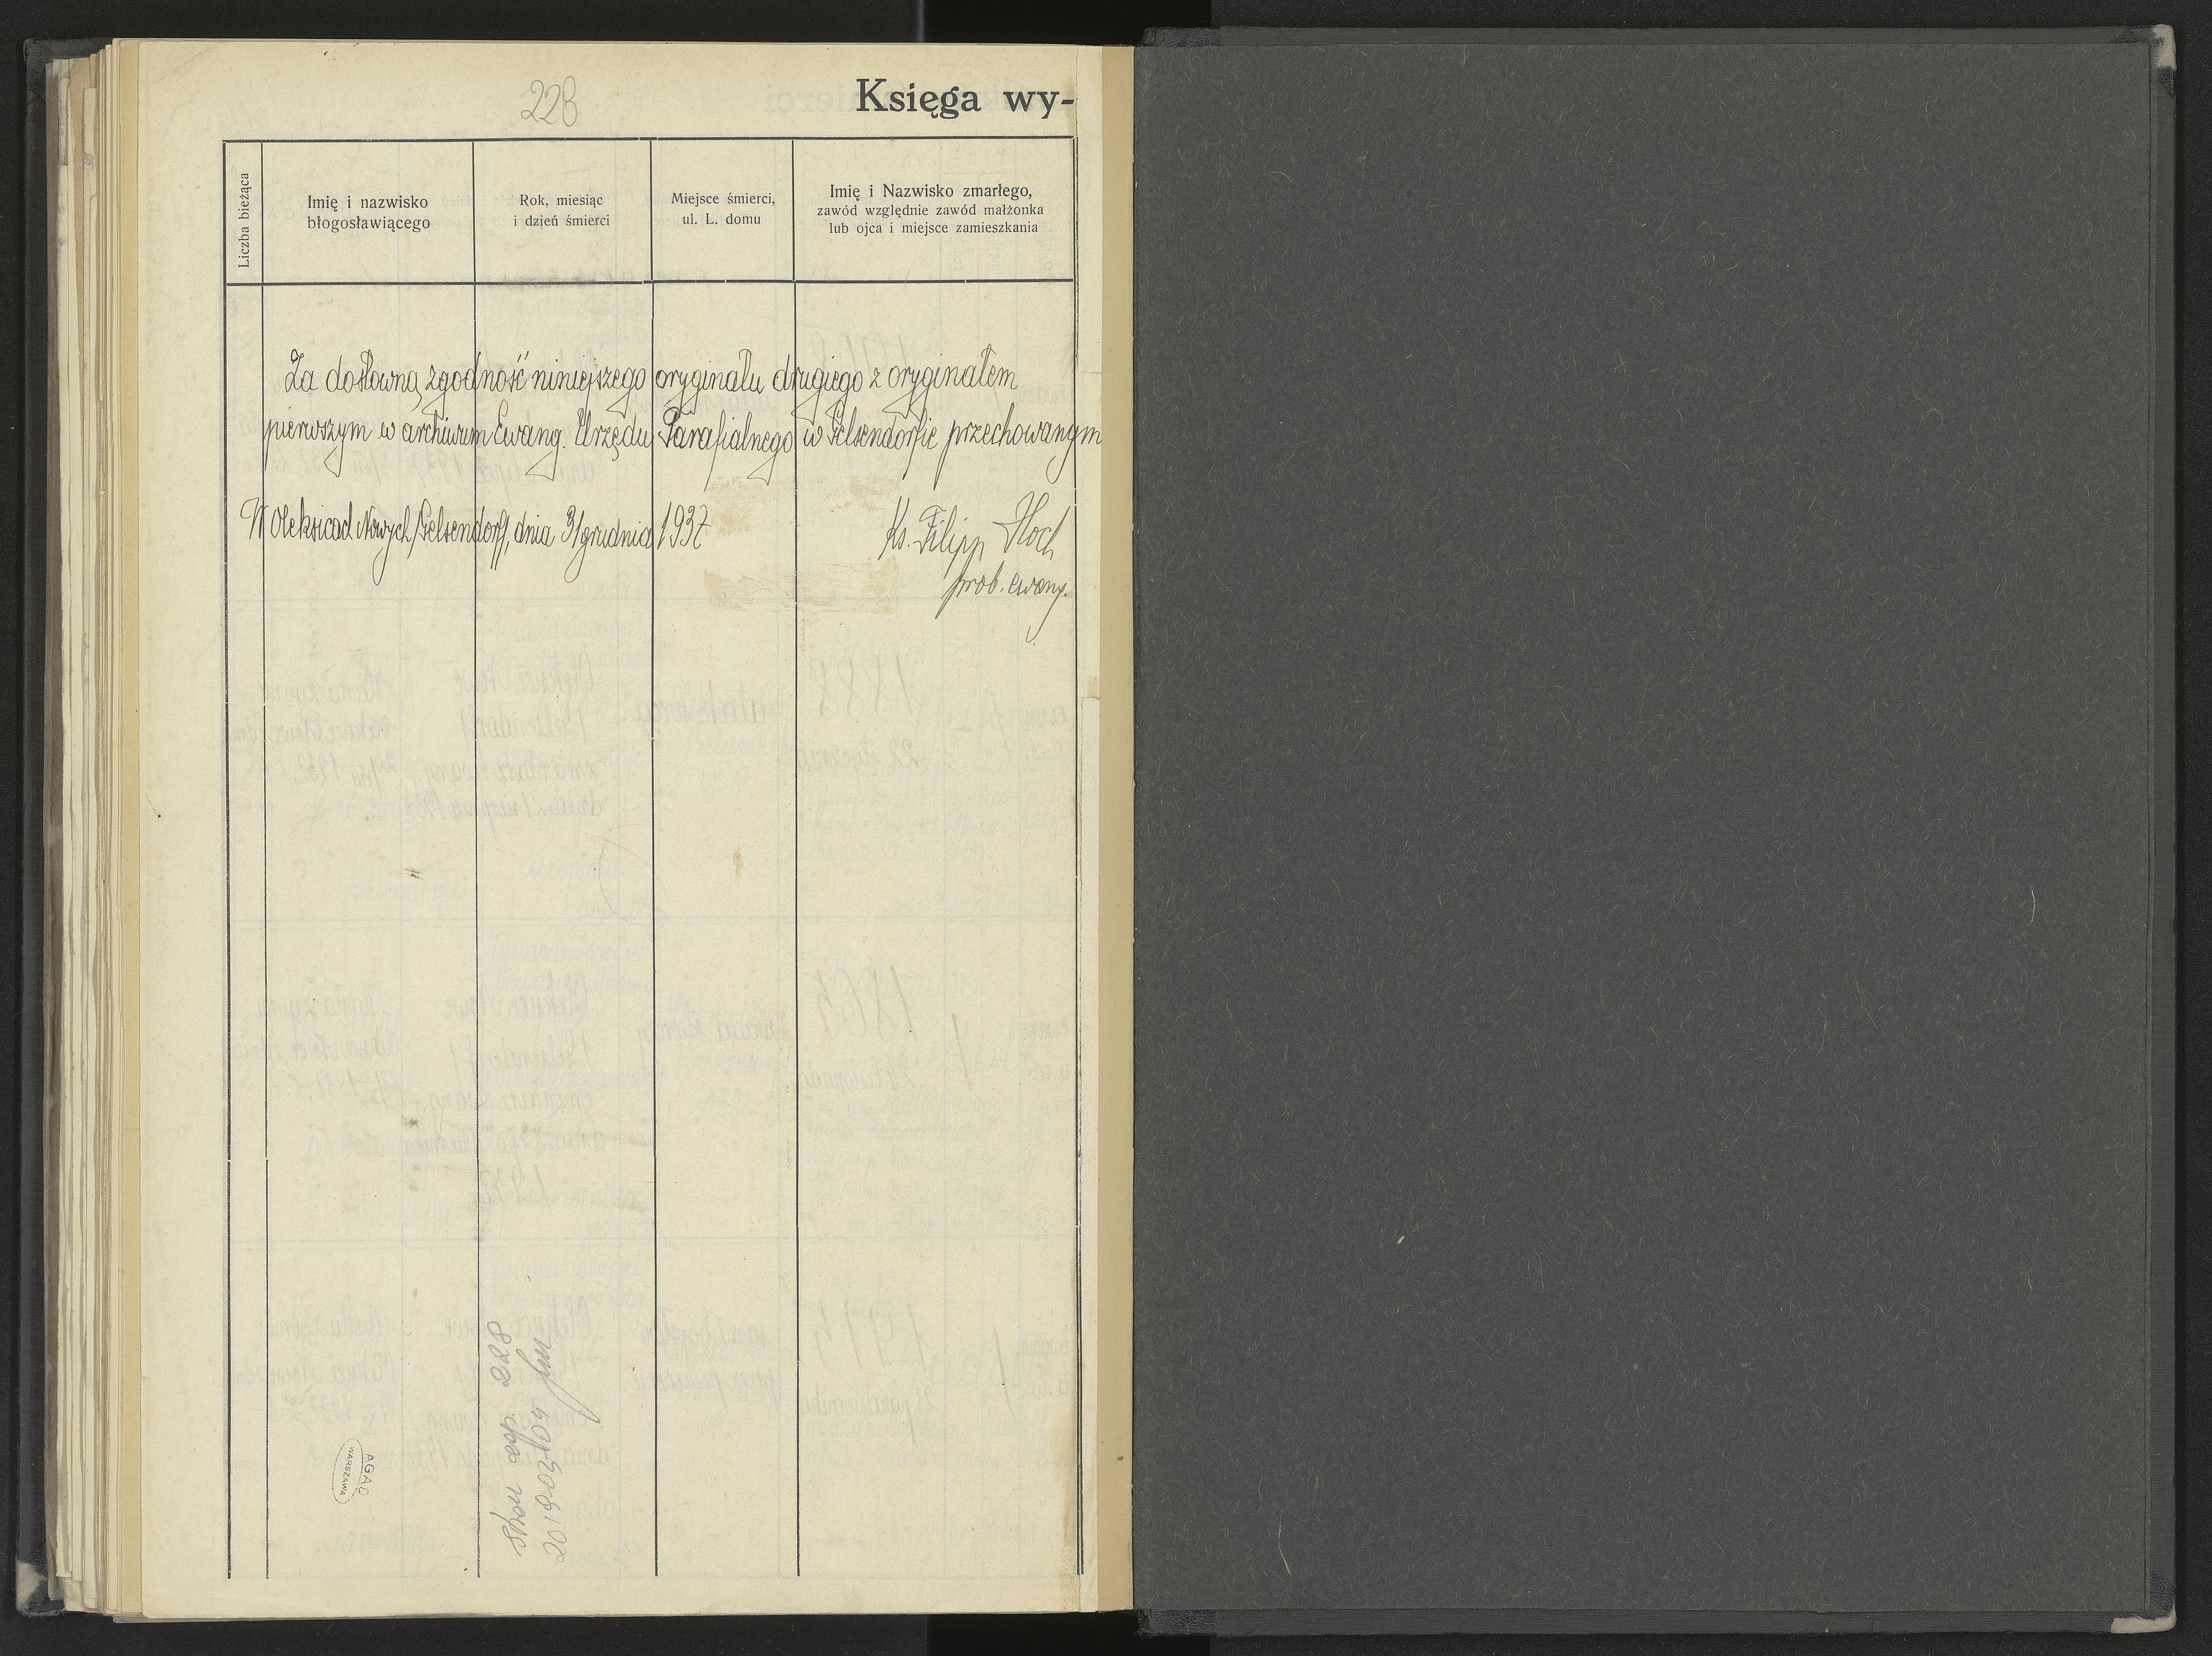 228
Księga wy-
Liczba bieżąca
Imię i nazwisko
błogosławiącego
Rok, miesiąc
i dzień śmierci
Miejsce śmierci,
ul. L. domu
Imię i Nazwisko zmarłego,
zawód względnie zawód małżonka
lub ojca i miejsce zamieszkania
Za dosłowną zgodność niniejszego oryginału drugiego z oryginałem
pierwszym w archiwum Ewang. Urzędu Parafialnego w Gelsendorfie przechowanym
W Oleksicach Nowych/Gelsendorf/, dnia 31 grudnia 1937
Ks. Filipp
prob. ewang.
228
2018
AGAD
WARSZAWA